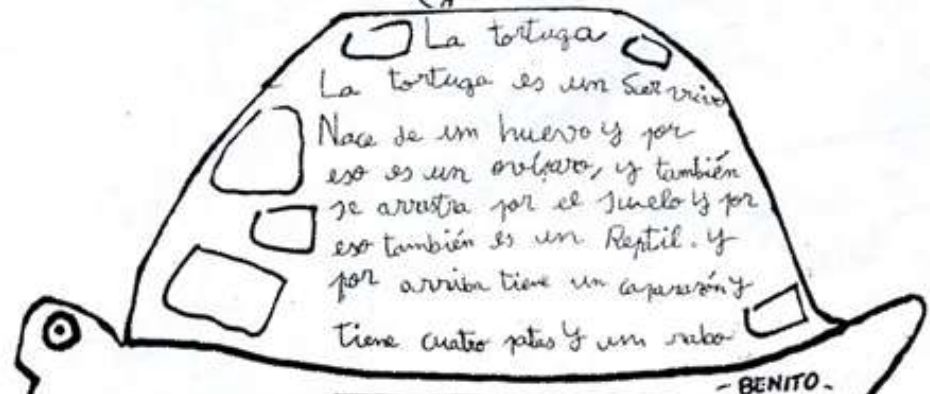 La tortuga
La tortuga es un Ser vivo
Nace de un huevo y por
eso es un ovíparo, y también
se arrastra por el suelo y por
eso también es un Reptil. y
por arriba tiene un caparazón y
tiene cuatro patas y un rabo
- BENITO -